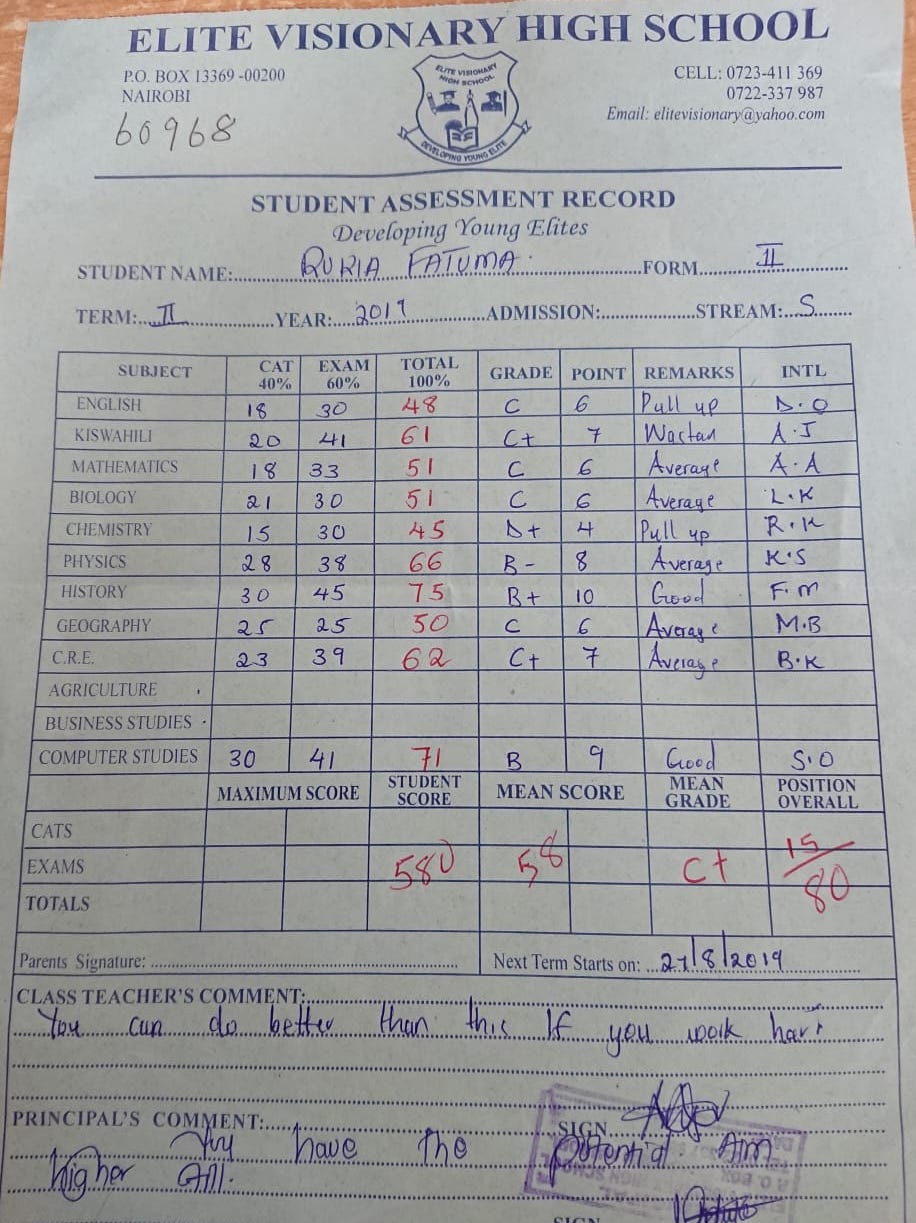 ELITE VISIONARY HIGH SCHOOL
P.O. BOX 13369 -00200
NAIROBI
60968
ELITE VISIONARY
HIGH SCHOOL
DEVELOPING YOUNG ELITE
CELL: 0723-411 369
0722-337 987
Email: elitevisionary@yahoo.com
STUDENT ASSESSMENT RECORD
Developing Young Elites
STUDENT NAME: RUKIA FATUMA FORM II
TERM: II YEAR: 2019 ADMISSION: STREAM: S
SUBJECT CAT 40% EXAM 60% TOTAL 100% GRADE POINT REMARKS INTL
ENGLISH 18 30 48 C 6 Pull up D.O
KISWAHILI 20 41 61 C+ 7 Wastan A.J
MATHEMATICS 18 33 51 C 6 Average A.A
BIOLOGY 21 30 51 C 6 Average L.K
CHEMISTRY 15 30 45 D+ 4 Pull up R.K
PHYSICS 28 38 66 B- 8 Average K.S
HISTORY 30 45 75 B+ 10 Good F.M
GEOGRAPHY 25 25 50 C 6 Average M.B
C.R.E. 23 39 62 C+ 7 Average B.K
AGRICULTURE
BUSINESS STUDIES
COMPUTER STUDIES 30 41 71 B 9 Good S.O
MAXIMUM SCORE STUDENT SCORE MEAN SCORE MEAN GRADE POSITION OVERALL
CATS
EXAMS 580 58 C+ 15/80
TOTALS
Parents Signature: Next Term Starts on: 27/8/2019
CLASS TEACHER'S COMMENT:
You can do better than this If you work hard
SIGN
PRINCIPAL'S COMMENT:
You have the potential. Aim
higher still.
SIGN